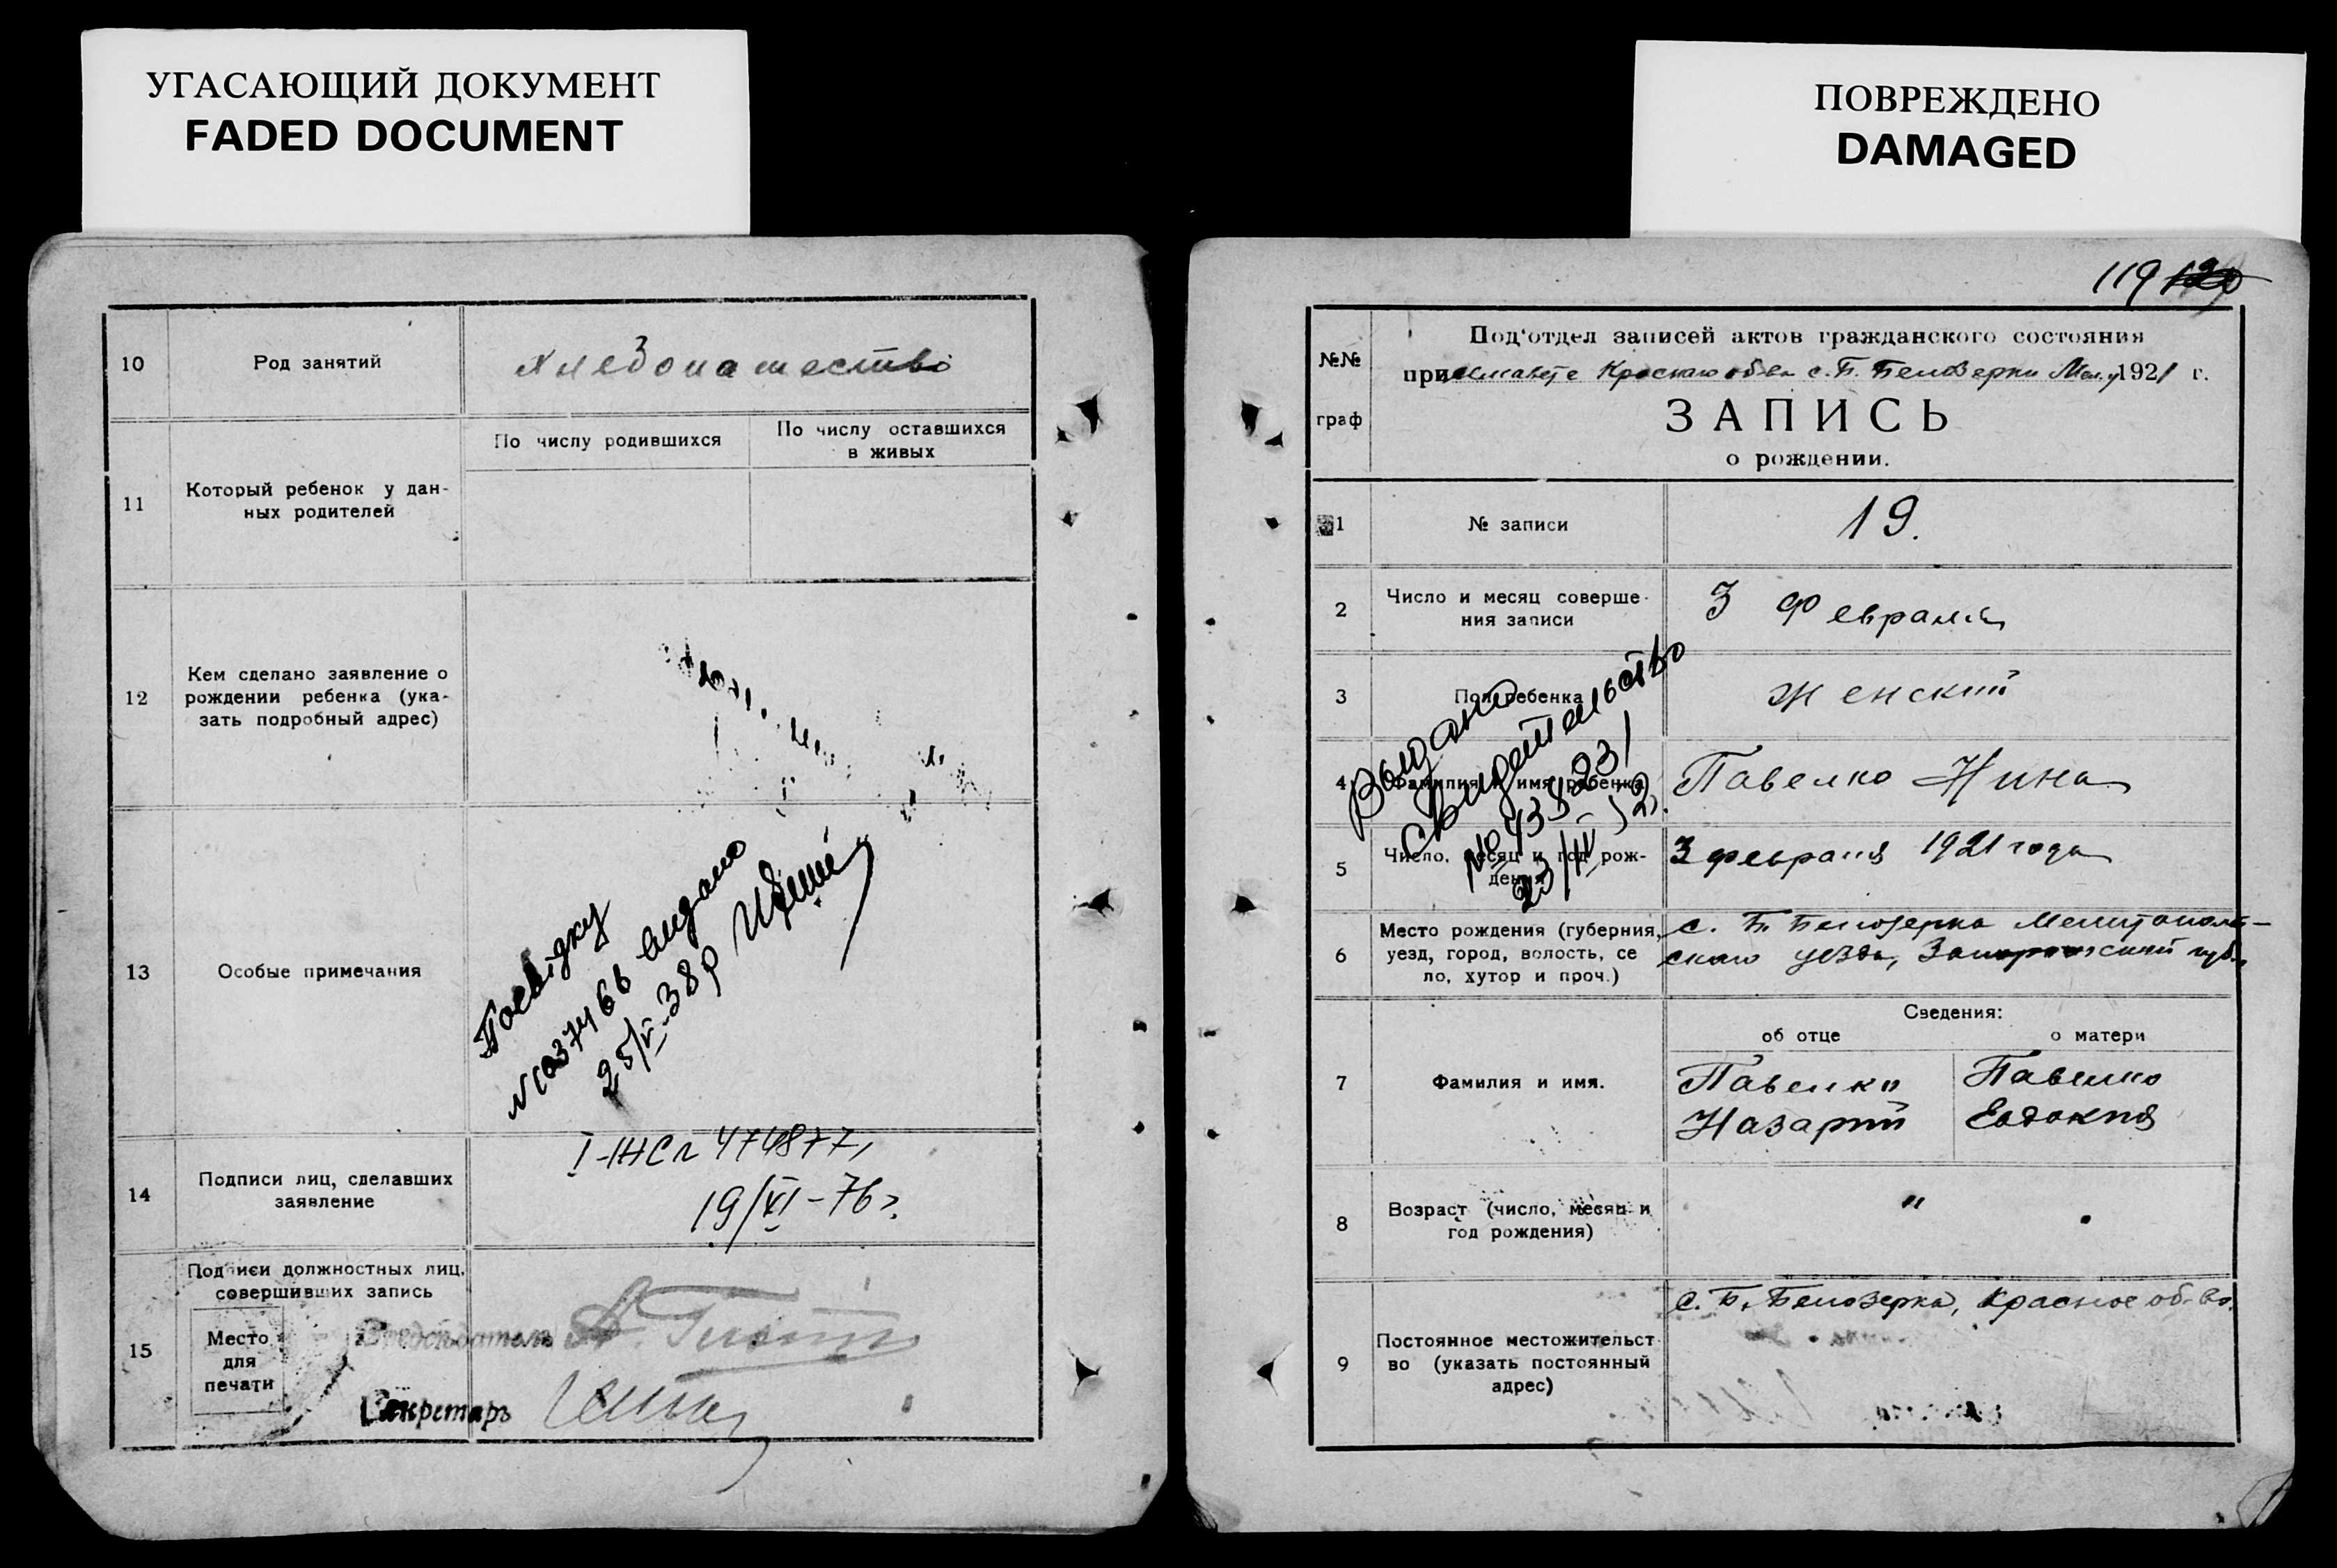 УГАСАЮЩИЙ ДОКУМЕНТ
FADED DOCUMENT
10
Род занятий
хлебопашество
11
Который ребенок у дан-
ных родителей
По числу родившихся
По числу оставшихся
в живых
12
Кем сделано заявление о
рождении ребенка (ука-
зать подробный адрес)
13
Особые примечания
Посвідку
видано
25/V-38р
14
Подписи лиц, сделавших
заявление
474877,
19/XI-76г.
15
Подписи должностных лиц,
совершивших запись
Место
для
печати
Председатель
Секретарь
ПОВРЕЖДЕНО
DAMAGED
119
№№
граф
Под'отдел записей актов гражданского состояния
при с. Б. Белозерки 1921 г.
ЗАПИСЬ
о рождении.
1
№ записи
19.
2
Число и месяц соверше-
ния записи
3 Февраля
3
Пол ребенка
женский
4
Фамилия и имя ребенка
Павелко Нина
Выдано
свидетельство
5
Число, месяц и год рож-
дения
3 февраля 1921 года
6
Место рождения (губерния,
уезд, город, волость, се
ло, хутор и проч.)
с. Б Белозерка Мелитополь-
ского уезда, Запорожской губ.
7
Фамилия и имя.
Сведения:
об отце
о матери
Павелко
Назарий
Павелко
Евдокия
8
Возраст (число, месяц и
год рождения)
"
9
Постоянное местожительст
во (указать постоянный
адрес)
с. Б. Белозерка, Красное об-во.